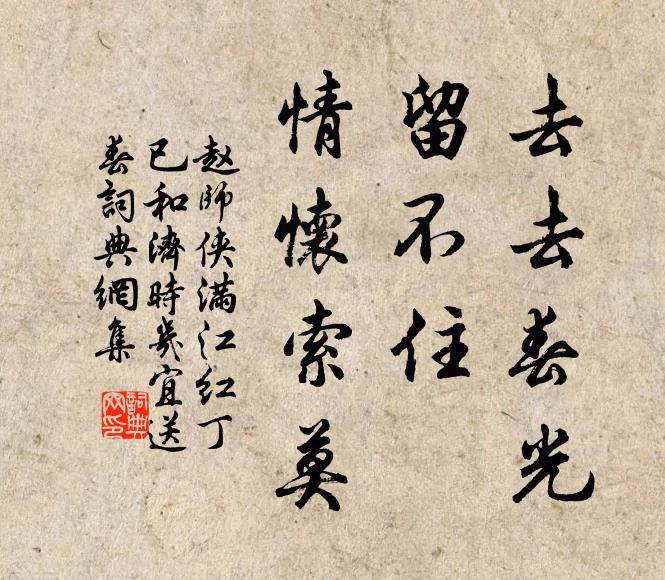 去去春光
留不住
情懷索莫
赵師侠滿江红丁
巳和濟時几宜送
春詞典網集
詞典
网印